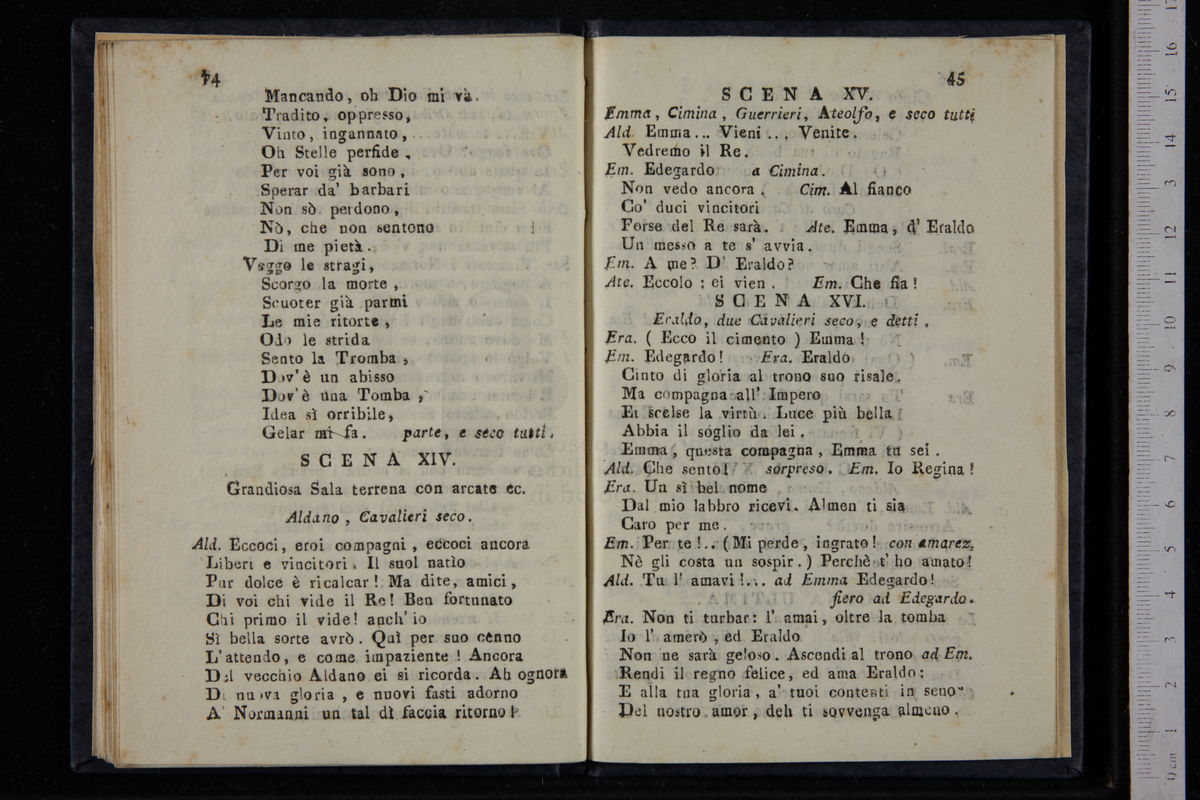 44
Mancando, oh Dio mi và.
Tradito, oppresso,
Vinto, ingannato,
Oh Stelle perfide,
Per voi già sono,
Sperar da' barbari
Non sò perdono,
Nò, che non sentono
Di me pietà.
Veggo le stragi,
Scorgo la morte,
Scuoter già parmi
Le mie ritorte,
Odo le strida
Sento la Tromba,
Dov'è un abisso
Dov'è una Tomba,
Idea sì orribile,
Gelar mi fa. parte, e seco tutti.
SCENA XIV.
Grandiosa Sala terrena con arcate ec.
Aldano, Cavalieri seco.
Ald. Eccoci, eroi compagni, eccoci ancora
Liberi e vincitori. Il suol natio
Pur dolce è ricalcar! Ma dite, amici,
Di voi chi vide il Re! Ben fortunato
Chi primo il vide! anch'io
Sì bella sorte avrò. Quì per suo cenno
L'attendo, e come impaziente! Ancora
Del vecchio Aldano ei si ricorda. Ah ognora
Di nuova gloria, e nuovi fasti adorno
A' Normanni un tal dì faccia ritorno!
45
SCENA XV.
Emma, Cimina, Guerrieri, Ateolfo, e seco tutti
Ald. Emma... Vieni... Venite.
Vedremo il Re.
Em. Edegardo a Cimina.
Non vedo ancora. Cim. Al fianco
Co' duci vincitori
Forse del Re sarà. Ate. Emma, d' Eraldo
Un messo a te s' avvia.
Em. A me? D' Eraldo?
Ate. Eccolo: ei vien. Em. Che fia!
SCENA XVI.
Eraldo, due Cavalieri seco, e detti.
Era. (Ecco il cimento) Emma!
Em. Edegardo! Era. Eraldo
Cinto di gloria al trono suo risale.
Ma compagna all' Impero
Ei scelse la virtù. Luce più bella
Abbia il soglio da lei.
Emma, questa compagna, Emma tu sei.
Ald. Che sento! sorpreso. Em. Io Regina!
Era. Un sì bel nome
Dal mio labbro ricevi. Almen ti sia
Caro per me.
Em. Per te!.. (Mi perde, ingrato! con amarez.
Nè gli costa un sospir.) Perchè t' ho amato!
Ald. Tu l' amavi!... ad Emma Edegardo!
fiero ad Edegardo.
Era. Non ti turbar: l' amai, oltre la tomba
Io l' amerò, ed Eraldo
Non ne sarà geloso. Ascendi al trono ad Em.
Rendi il regno felice, ed ama Eraldo:
E alla tua gloria, a' tuoi contenti in seno
Del nostro amor, deh ti sovvenga almeno.